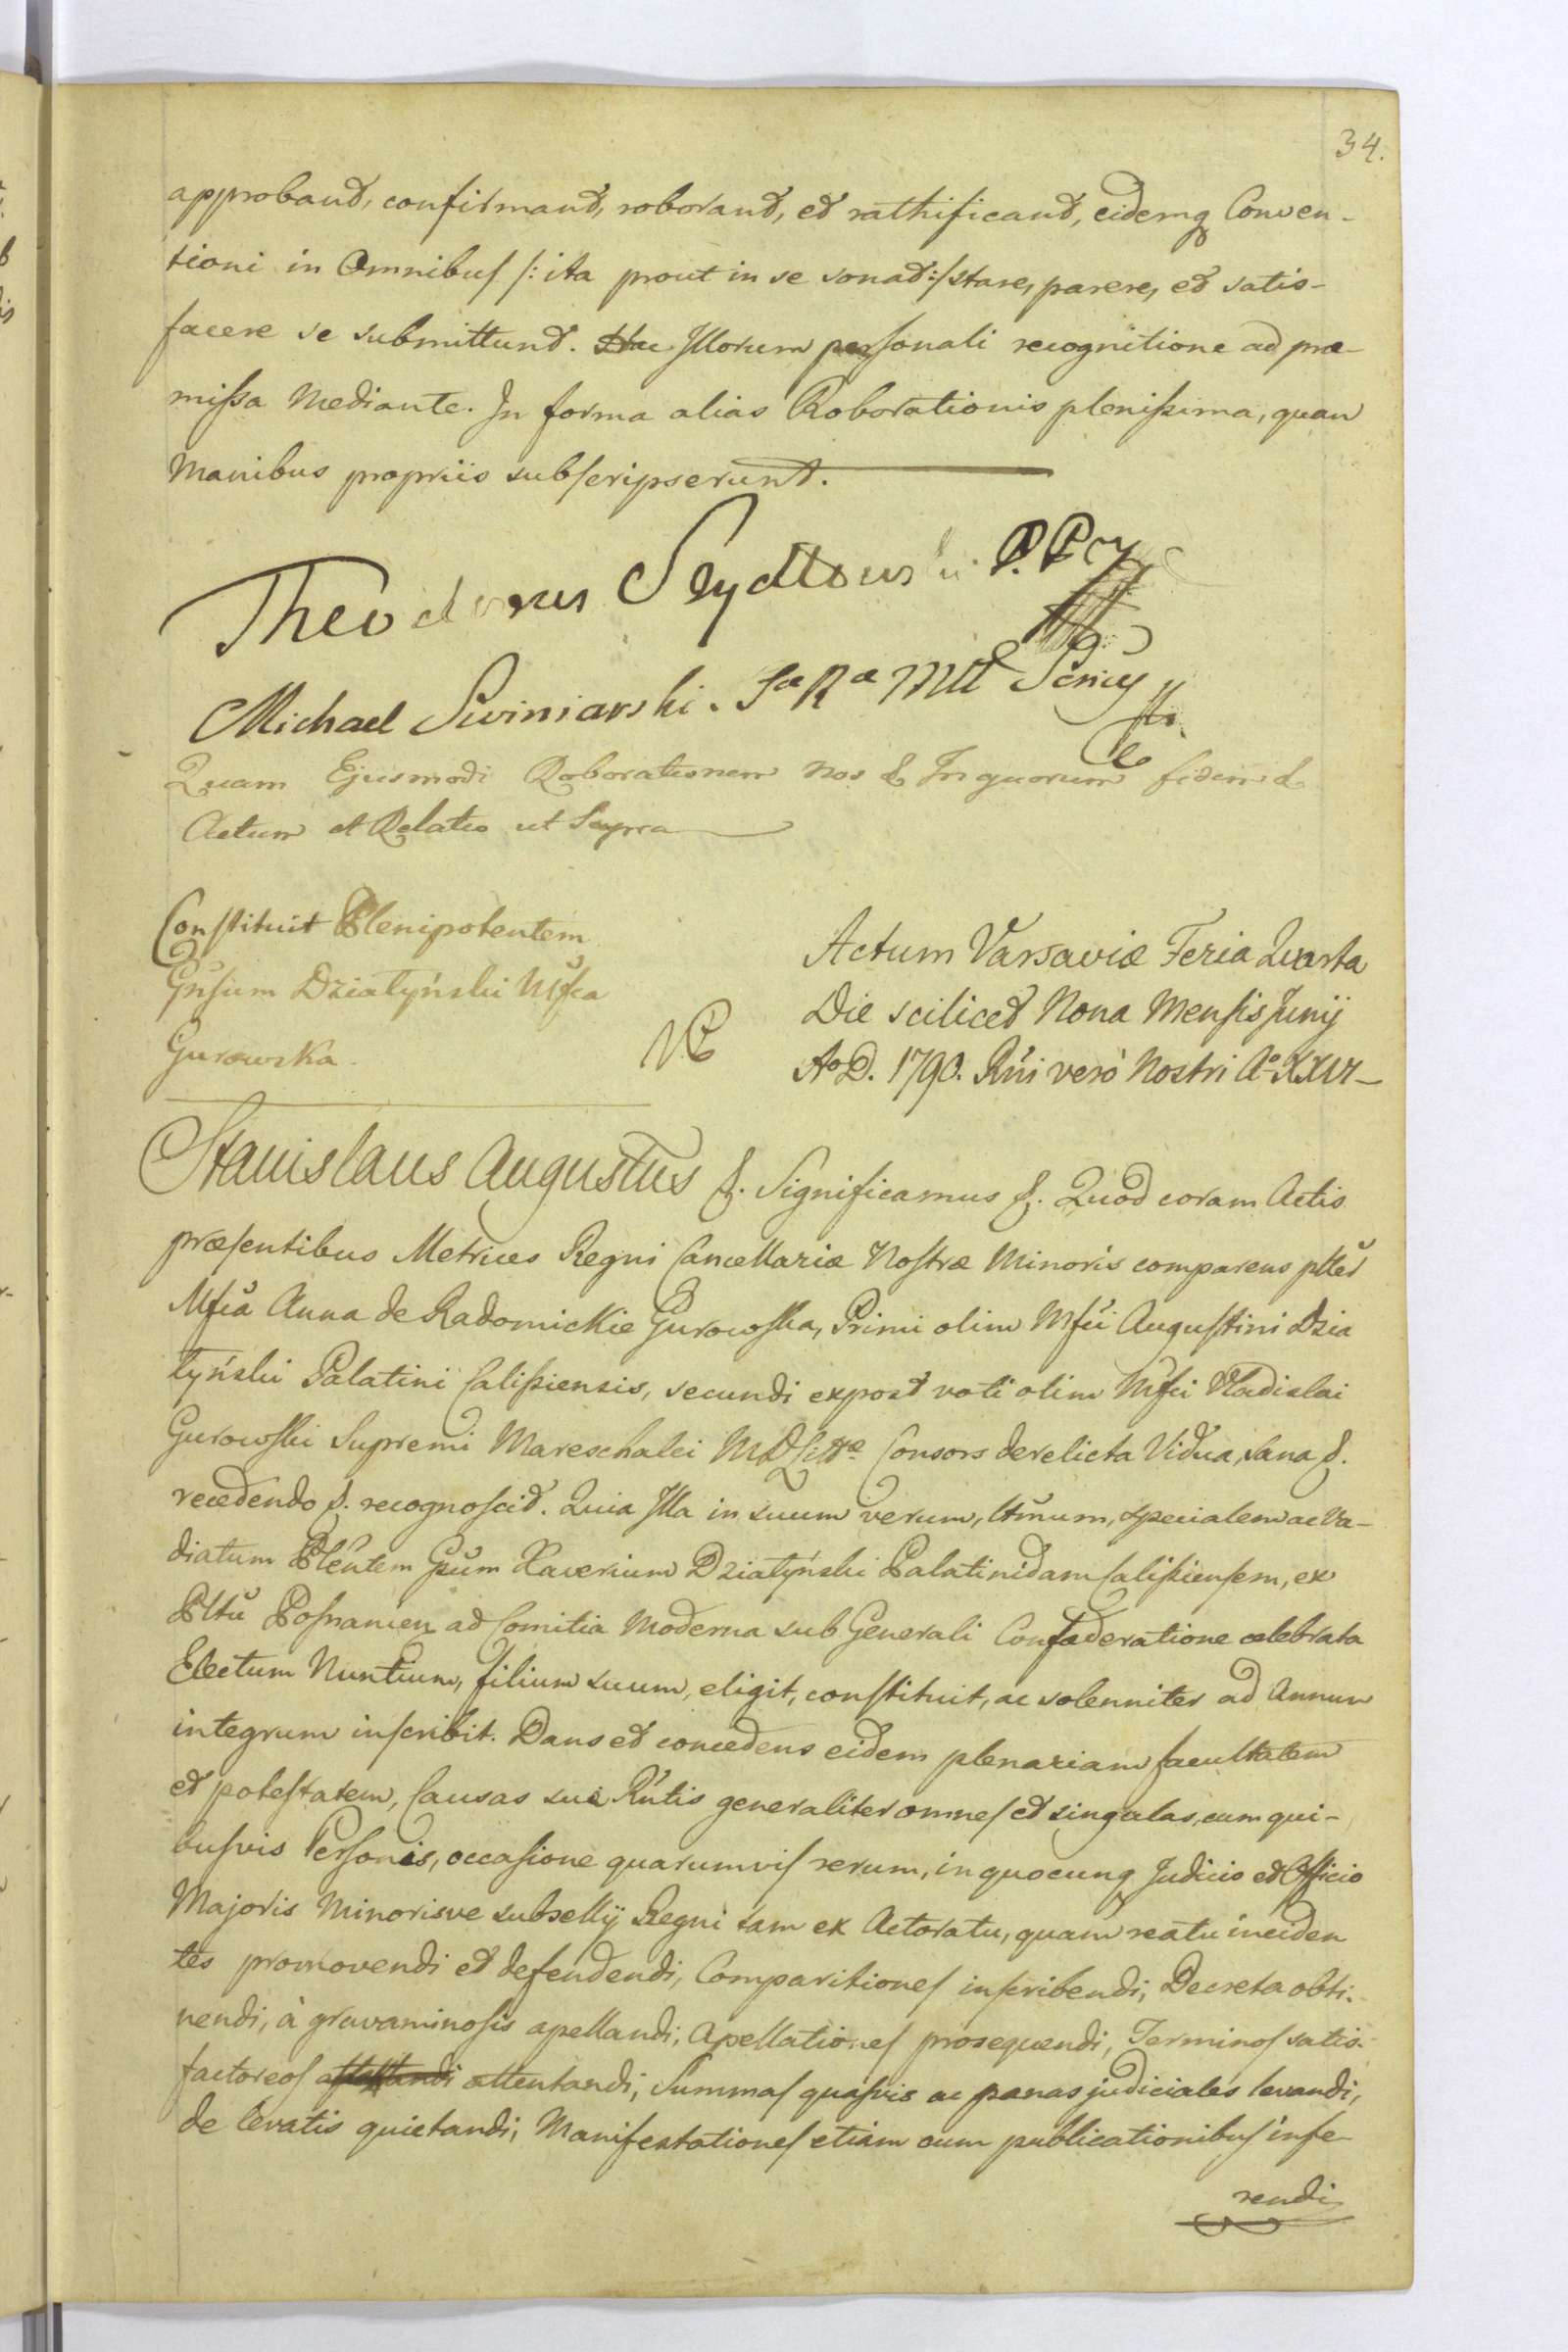 34.
approband, confirmand, roborand, et rathificand, eidemq Conven-
tioni in Omnibus /: ita prout in se sonat :/ stare, parere, et satis-
facere se submittunt. Illorum personali recognitione ad præ-
missa Mediante. In forma alias Roborationis plenissima, quam
Manibus propriis subscripserunt.
Theodorus Szydłowski P.P.
Michael Swiniarski. Sæ Ræ Mtt
Quam Ejusmodi Roborationem Nos & In quorum fidem &
Actum et Relatio ut Supra
Constituit Plenipotentem
Gnsum Działyński Mfca
Gurowska.
Actum Varsaviæ Feria Quarta
Die scilicet Nona Mensis Junij
Ao D. 1790. Rni verò Nostri Ao XXVI
Stanislaus Augustus &. Significamus &. Quod coram Actis
præsentibus Metrices Regni Cancellariæ Nostræ Minoris comparens pltter
Mfca Anna de Radomickie Gurowska, Primi olim Mfci Augustini Dzia
łyński Palatini Calissiensis, secundi expost voti olim Mfci Vladislai
Gurowski Supremi Mareschalci MDLittæ Consors derelicta Vidua, sana &.
recedendo &. recognoscit. Quia Illa in suum verum, ltmum, specialem ac Va-
diatum Plentem Gsum Xaverium Działyński Palatinidam Calissiensem, ex
Pltu Posnanien ad Comitia Moderna sub Generali Confæderatione celebrata
Electum Nuntium, filium suum, eligit, constituit, ac solenniter ad Annum
integrum inscribit. Dans et concedens eidem plenariam facultatem
et potestatem, Causas suæ Rntis generaliter omnes et singulas, cum qui-
busvis Personis, occasione quarumvis rerum, in quocunq Judicio et Officio
Majoris Minorisve subsellij Regni tam ex Actoratu, quam reatu inciden
tes promovendi et defendendi, Comparitiones inscribendi, Decreta obti-
nendi, à gravaminosis apellandi, Apellationes prosequendi, Terminos satis-
factoreos attentandi, Summas quasvis ac pænas judiciales levandi,
de levatis quietandi, Manifestationes etiam cum publicationibus infe-
rendi